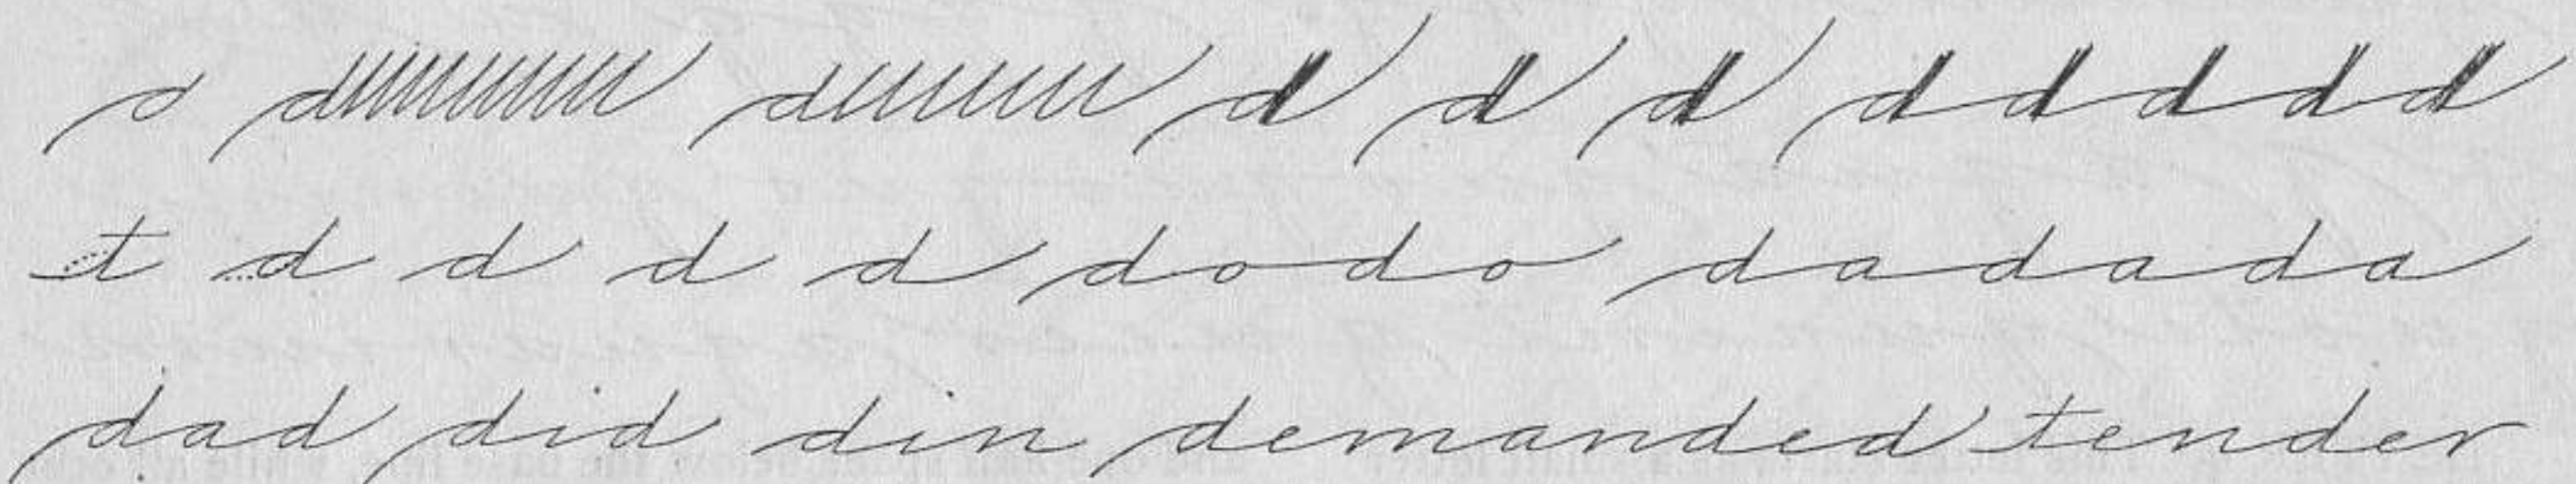 d d d d d d d d d
t d d d d dodo dadada
dad did din demanded tender